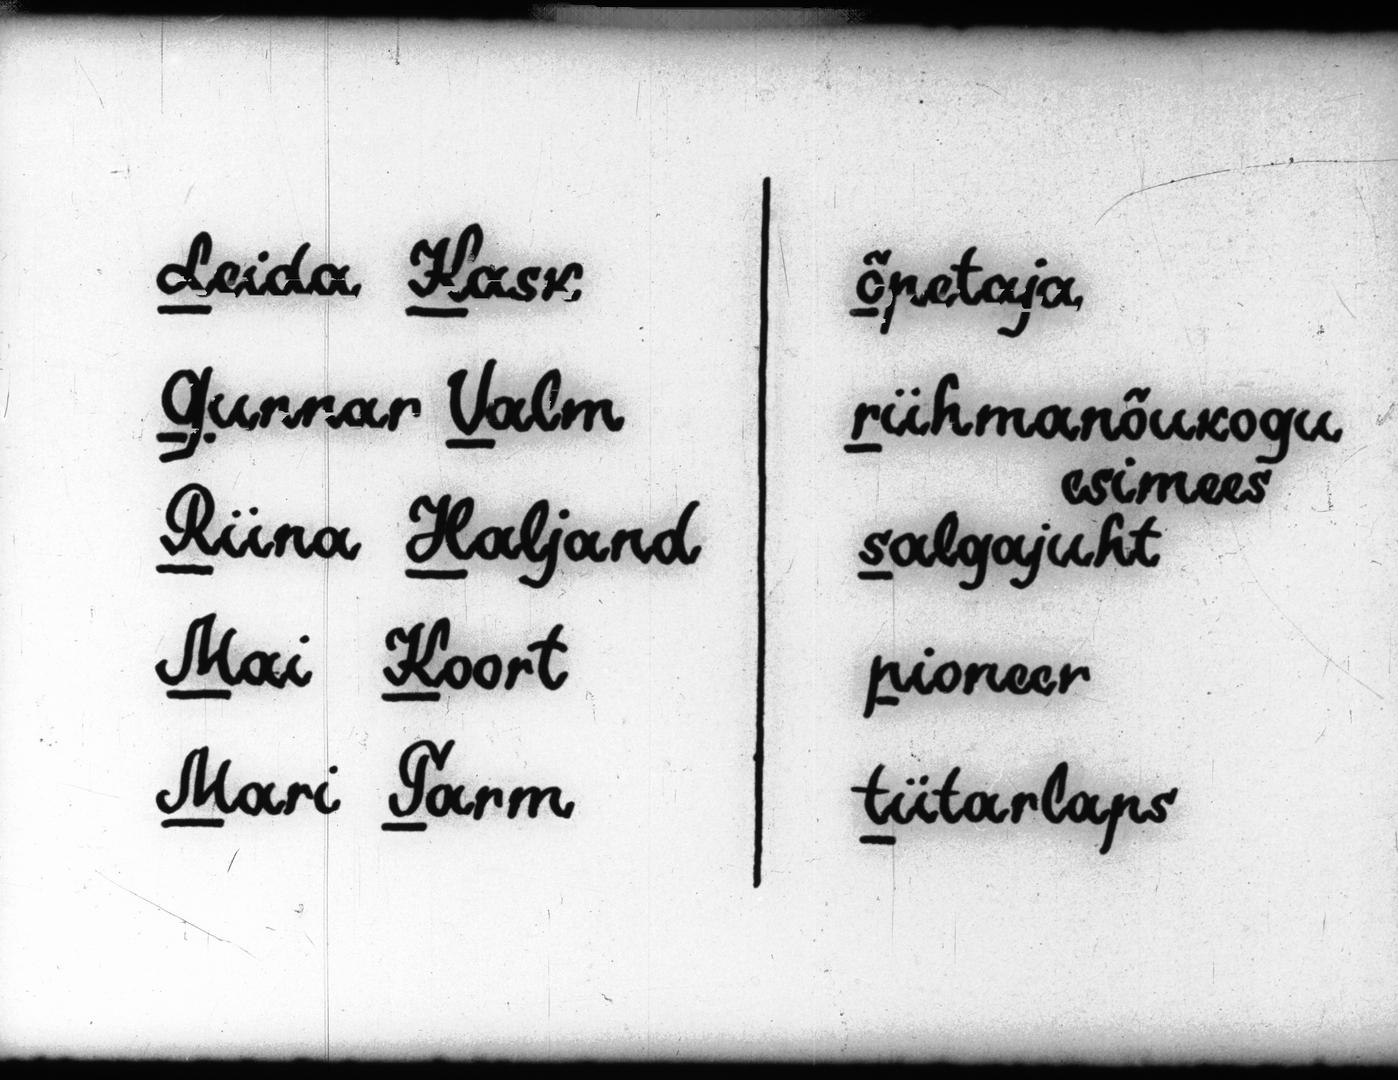 Leida Kask õpetaja
Gunnar Valm rühmanõukogu
esimees
Riina Haljand salgajuht
Mai Koort pioneer
Mari Tarm tütarlaps